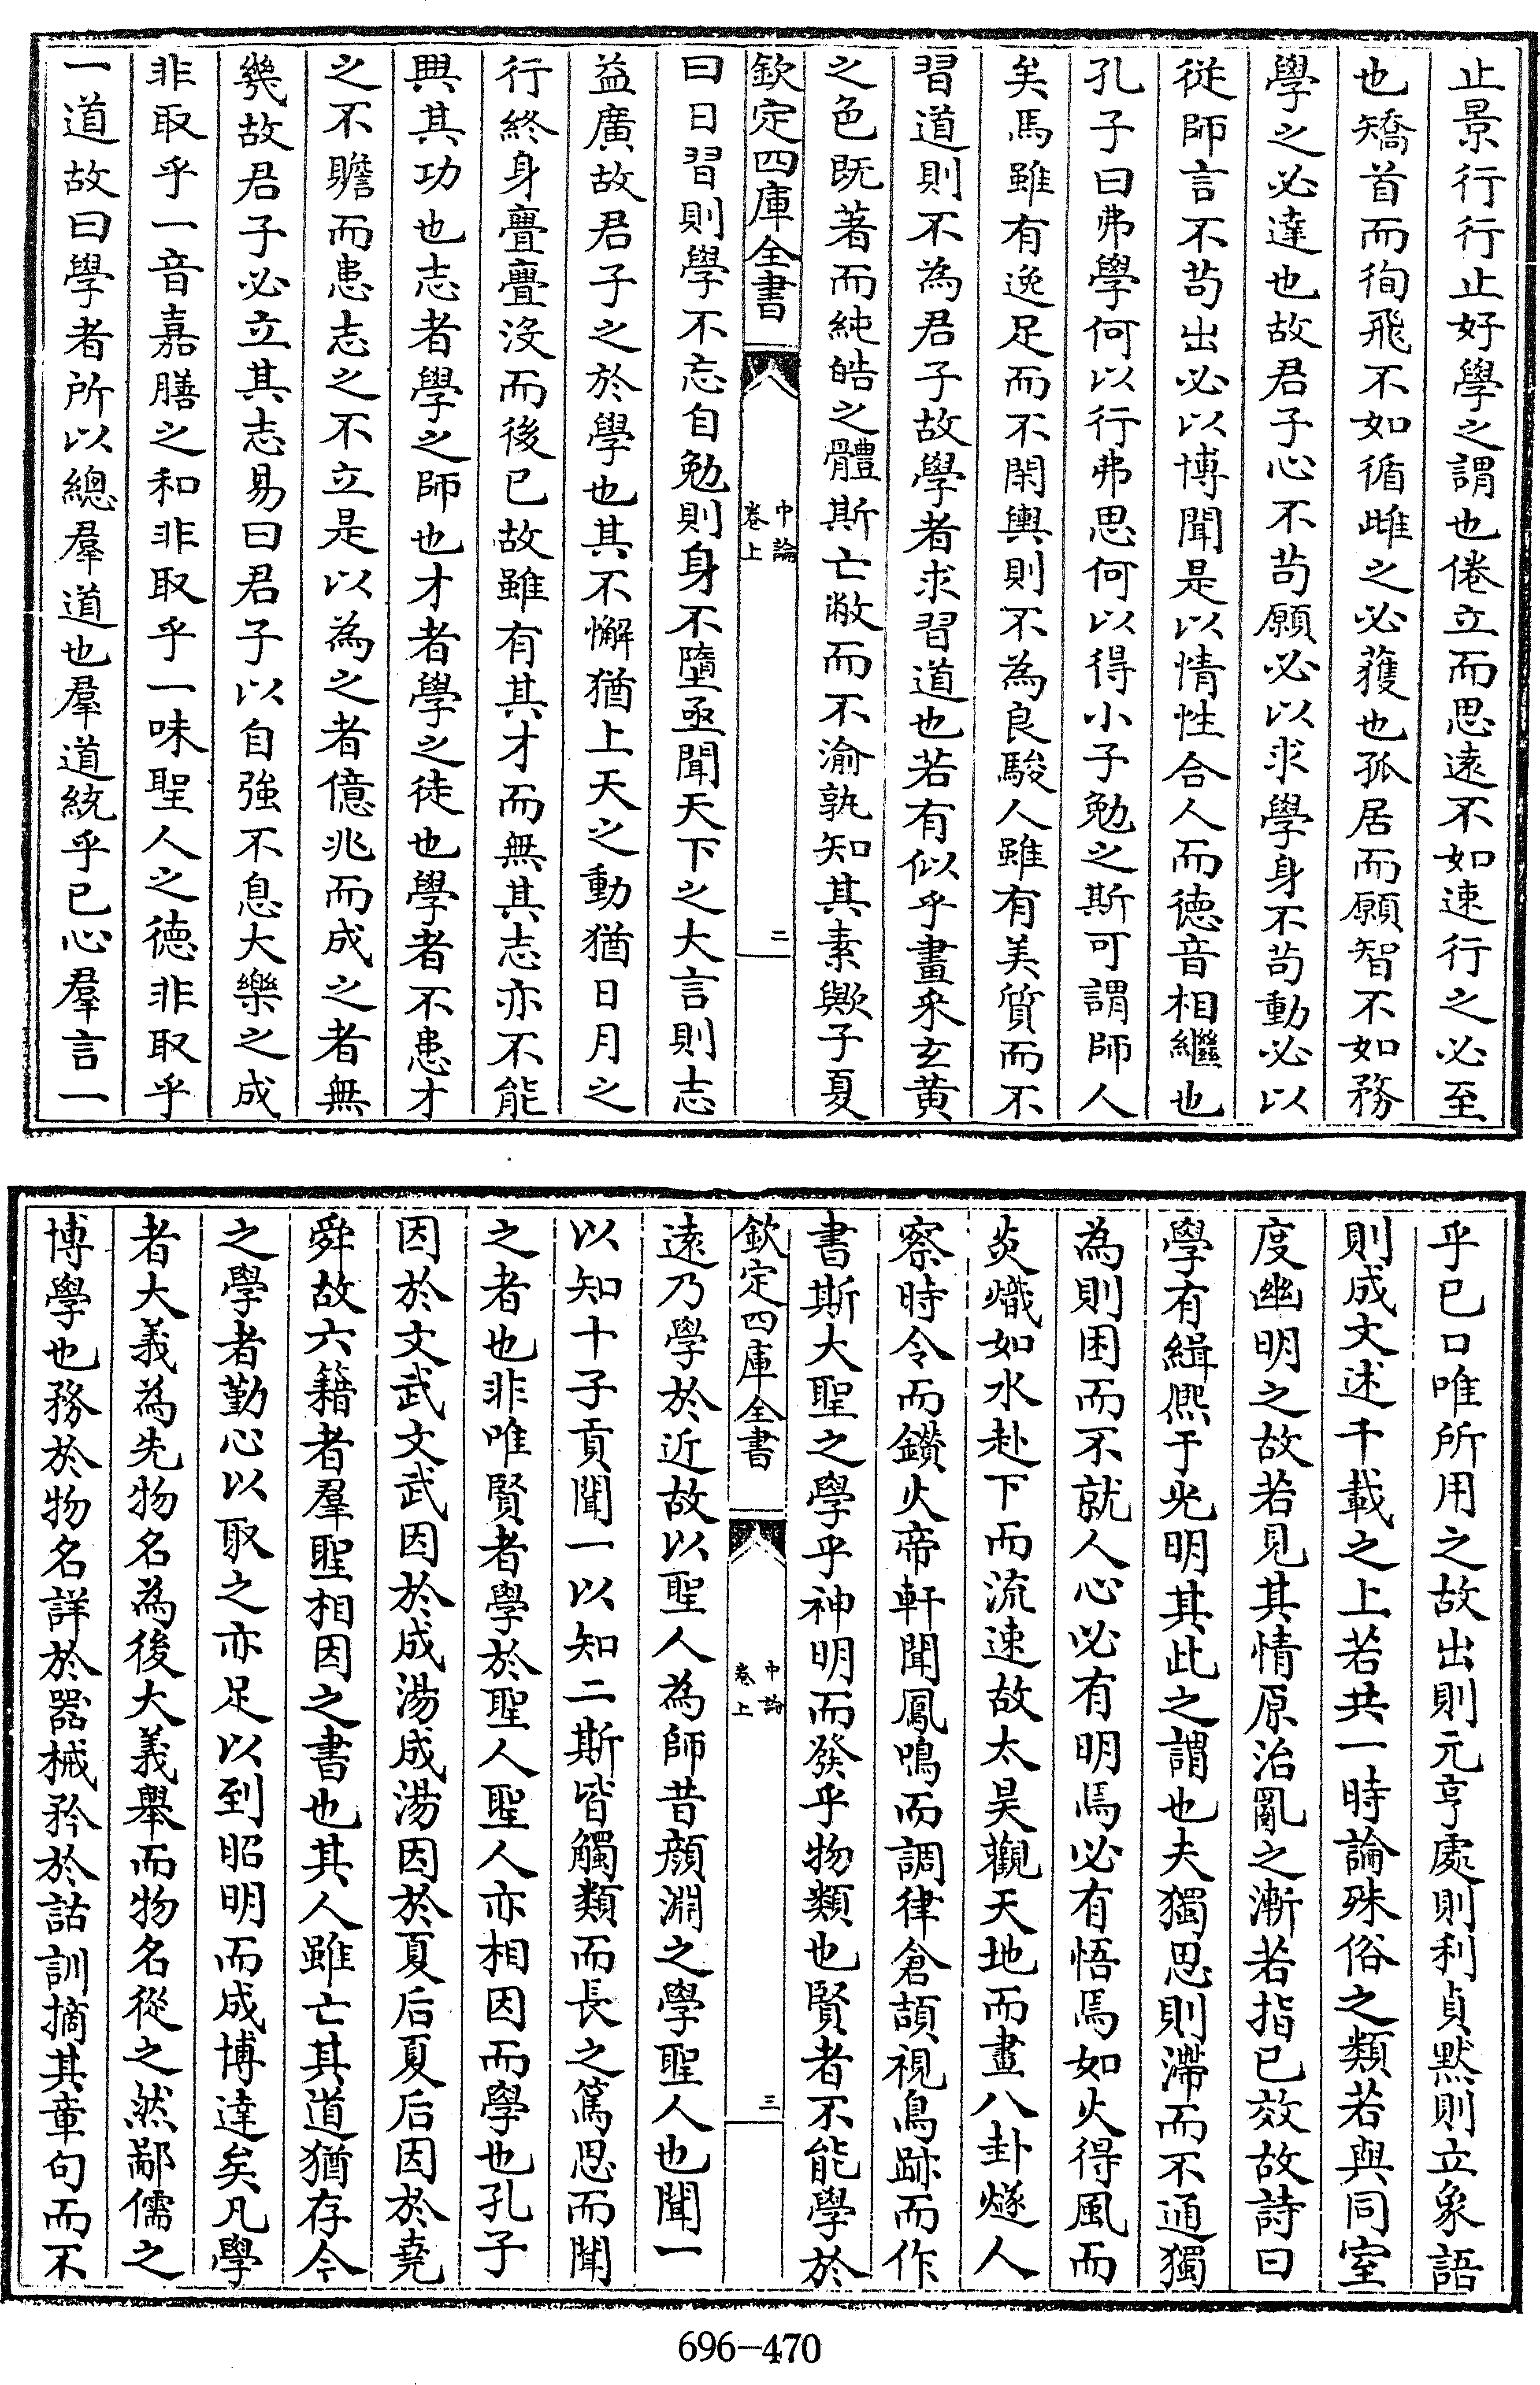 止景行行止好學之謂也倦立而思遠不如速行之必至
也矯首而徇飛不如循雌之必獲也孤居而願智不如務
學之必達也故君子心不苟願必以求學身不苟動必以
從師言不苟出必以博聞是以情性合人而德音相繼也
孔子曰弗學何以行弗思何以得小子勉之斯可謂師人
矣馬雖有逸足而不閑輿則不為良駿人雖有美質而不
習道則不為君子故學者求習道也若有似乎畫采玄黃
之色既著而純皓之體斯亡敝而不渝孰知其素歟子夏
欽定四庫全書
中論
卷上
二
曰日習則學不忘自勉則身不墮亟聞天下之大言則志
益廣故君子之於學也其不懈猶上天之動猶日月之
行終身亹亹沒而後已故雖有其才而無其志亦不能
興其功也志者學之師也才者學之徒也學者不患才
之不贍而患志之不立是以為之者億兆而成之者無
幾故君子必立其志易曰君子以自強不息大樂之成
非取乎一音嘉膳之和非取乎一味聖人之德非取乎
一道故曰學者所以總羣道也羣道統乎已心羣言一
乎已口唯所用之故出則元亨處則利貞默則立象語
則成文述千載之上若共一時論殊俗之類若與同室
度幽明之故若見其情原治亂之漸若指已效故詩曰
學有緝熙于光明其此之謂也夫獨思則滯而不通獨
為則困而不就人心必有明焉必有悟焉如火得風而
炎熾如水赴下而流速故太昊觀天地而畫八卦燧人
察時令而鑽火帝軒聞鳳鳴而調律倉頡視鳥跡而作
書斯大聖之學乎神明而發乎物類也賢者不能學於
欽定四庫全書
中論
卷上
三
遠乃學於近故以聖人為師昔顏淵之學聖人也聞一
以知十子貢聞一以知二斯皆觸類而長之篤思而聞
之者也非唯賢者學於聖人聖人亦相因而學也孔子
因於文武文武因於成湯成湯因於夏后夏后因於堯
舜故六籍者羣聖相因之書也其人雖亡其道猶存今
之學者勤心以取之亦足以到昭明而成博達矣凡學
者大義為先物名為後大義舉而物名從之然鄙儒之
博學也務於物名詳於器械矜於詁訓摘其章句而不
696-470